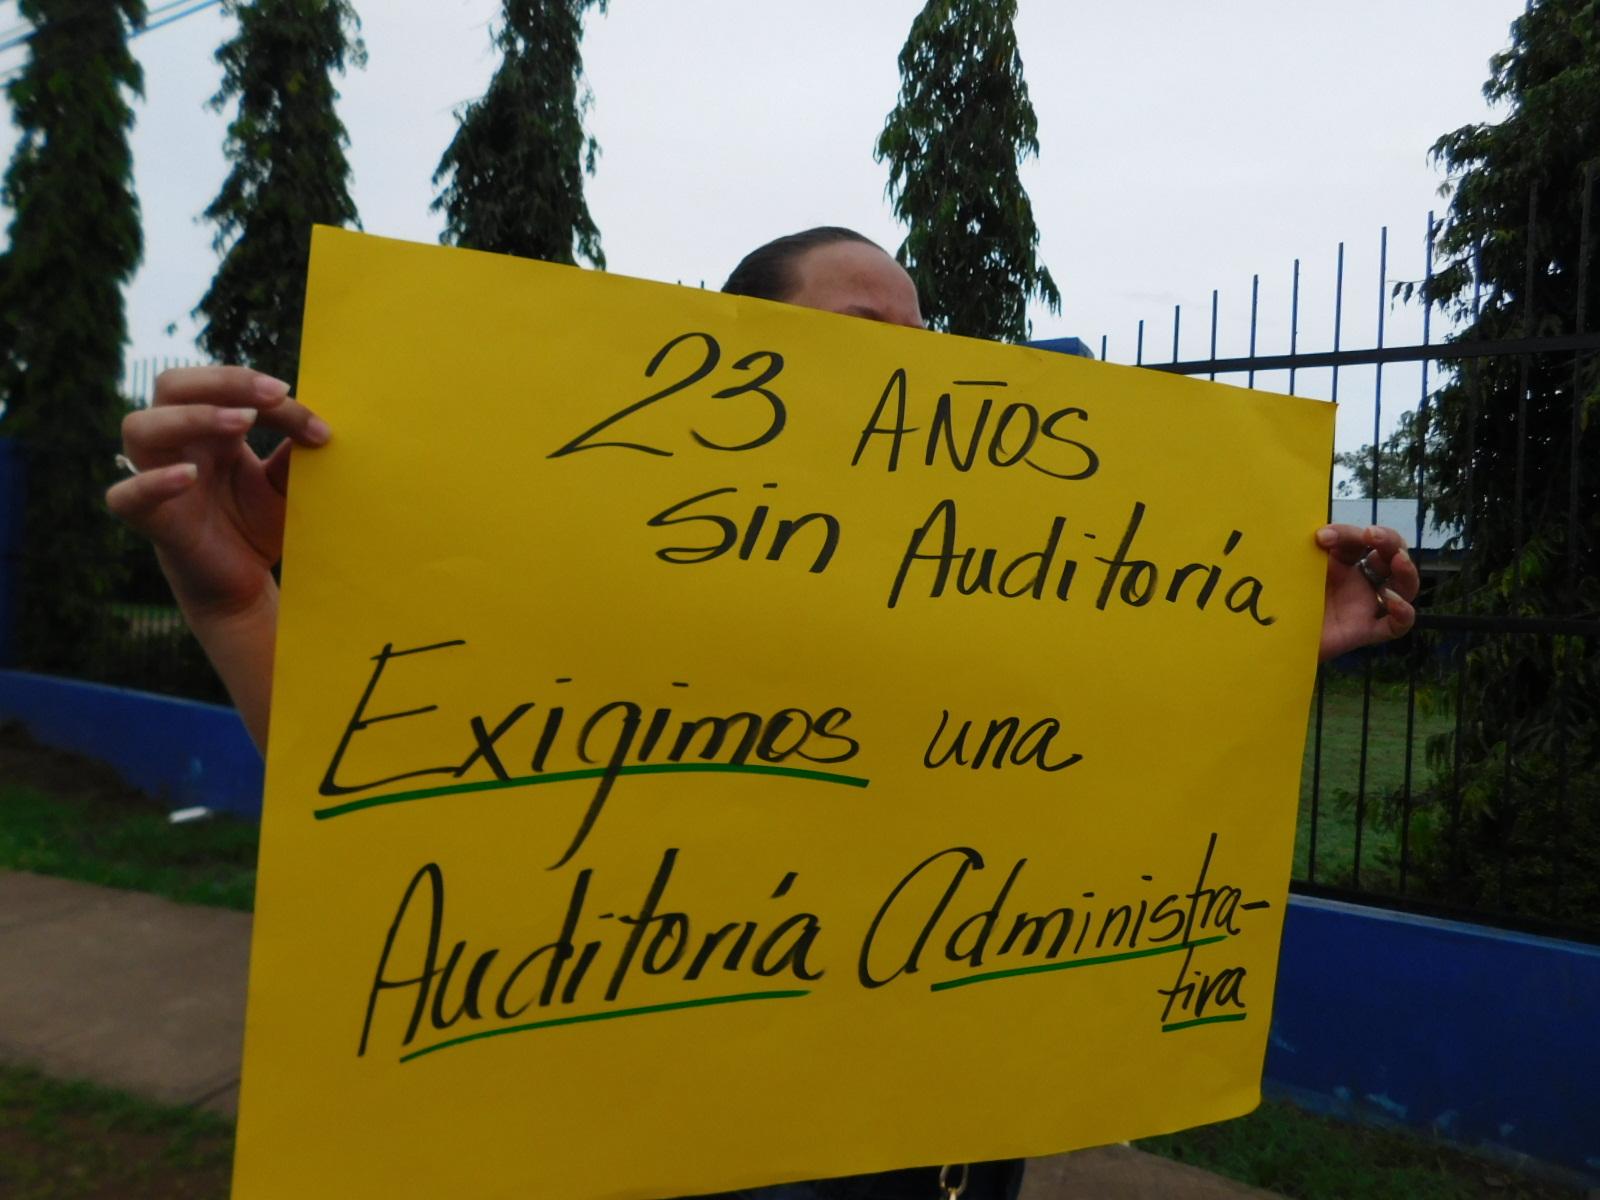 23 AÑOS
sin Auditoría
Exigimos una
Auditoría Administra-
tiva